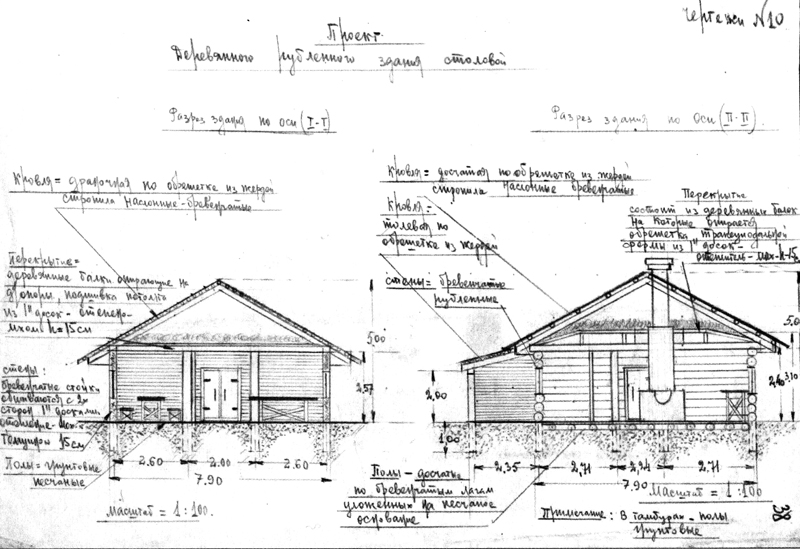 Чертежи №10
Проект
Деревянного рубленного здания столовой
Разрез здания по оси (I-I)
Разрез здания по оси (II-II).
Кровля = драночная по обрешетке из жердей
стропила наслонные-бревенчатые
Перекрытие=
деревянные балки опирающие на
опоры, подшивка потолка
из 1" досок - отепле
мхом h=15см
стены:
бревенчатые стойки
обшиваются с 2х
сторон 1" досками
15см
Полы = грунтовые
песчаные
5,00
2,57
2.60
2.00
2.60
7.90
Масштаб = 1:100.
Кровля = досчатая по обрешетке из жердей
стропила наслонные бревенчатые
Кровля =
толевая по
обрешетке из жердей
стены = бревенчатые
рубленные
Перекрытие
состоит из деревянных балок
на которые опирается
обрешетка трапецоидальной
формы из 1" досок-
утеплитель - мох-h-15
5,0
2,40
3,10
2,00
1,00
2,35
2,71
2,24
2,71
7.90
Масштаб = 1:100
Полы - досчатые
по бревенчатым лагам
уложенных на песчаное
основание
Примечание: В тамбурах - полы
грунтовые
38